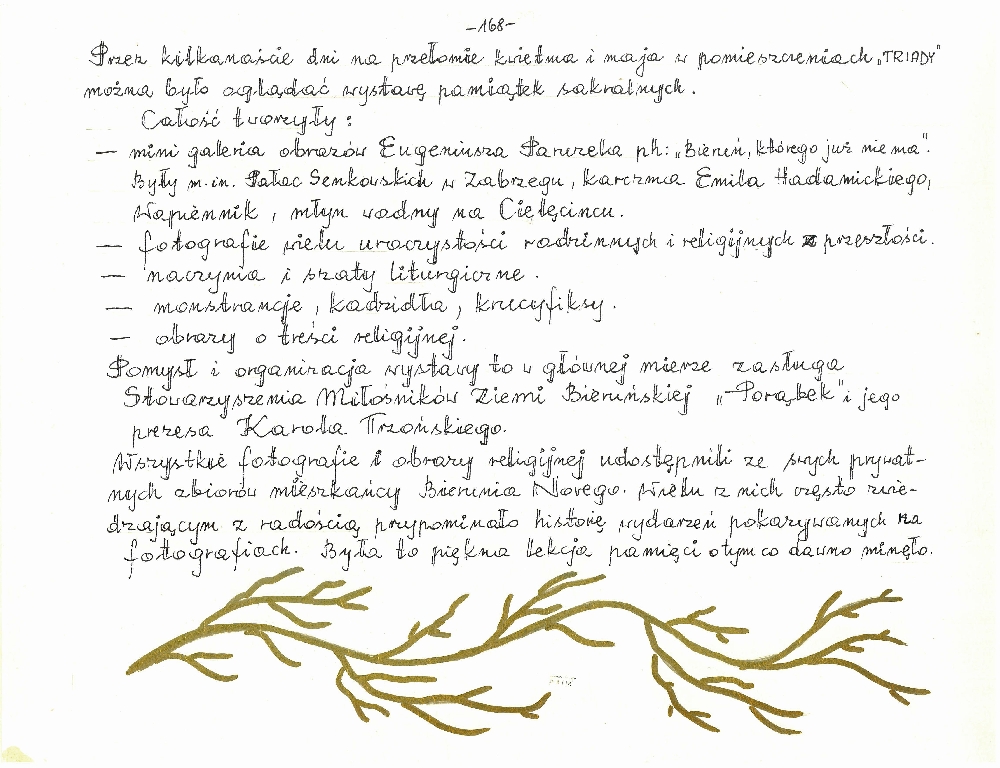 -168-
Przez kilkanaście dni na przełomie kwietnia i maja w pomieszczeniach „TRIADY"
można było oglądać wystawę pamiątek sakralnych.
Całość tworzyły:
— mini galeria obrazów Eugeniusza Parczeka ph: „Bieruń, którego już nie ma".
Były m.in. Pałac Senkowskich w Zabrzegu, karczma Emila Hadamickiego,
Wapiennik, młyn wodny na Cielęcincu.
— fotografie wielu uroczystości rodzinnych i religijnych z przeszłości.
— naczynia i szaty liturgiczne.
— monstrancje, kadzidła, krucyfiksy.
— obrazy o treści religijnej.
Pomysł i organizacja wystawy to w głównej mierze zasługa
Stowarzyszenia Miłośników Ziemi Bieruńskiej „Porąbek" i jego
prezesa Karola Trzońskiego.
Wszystkie fotografie i obrazy religijnej udostępnili ze swych prywat-
nych zbiorów mieszkańcy Bierunia Nowego. Wielu z nich często zwie-
dzającym z radością przypominało historię wydarzeń pokazywanych na
fotografiach. Była to piękna lekcja pamięci o tym co dawno minęło.